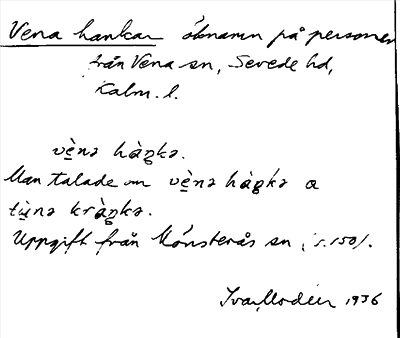 Vena hankar öknamn på personer
från Vena sn, Sevede hd,
Kalm. l.
vè̱nə hàŋkə.
Man talade om vè̱nə hàŋkə a
tù̱nə kràŋkə.
Uppgift från Mönsterås sn (s. 150).
Ivar Modéer 1936